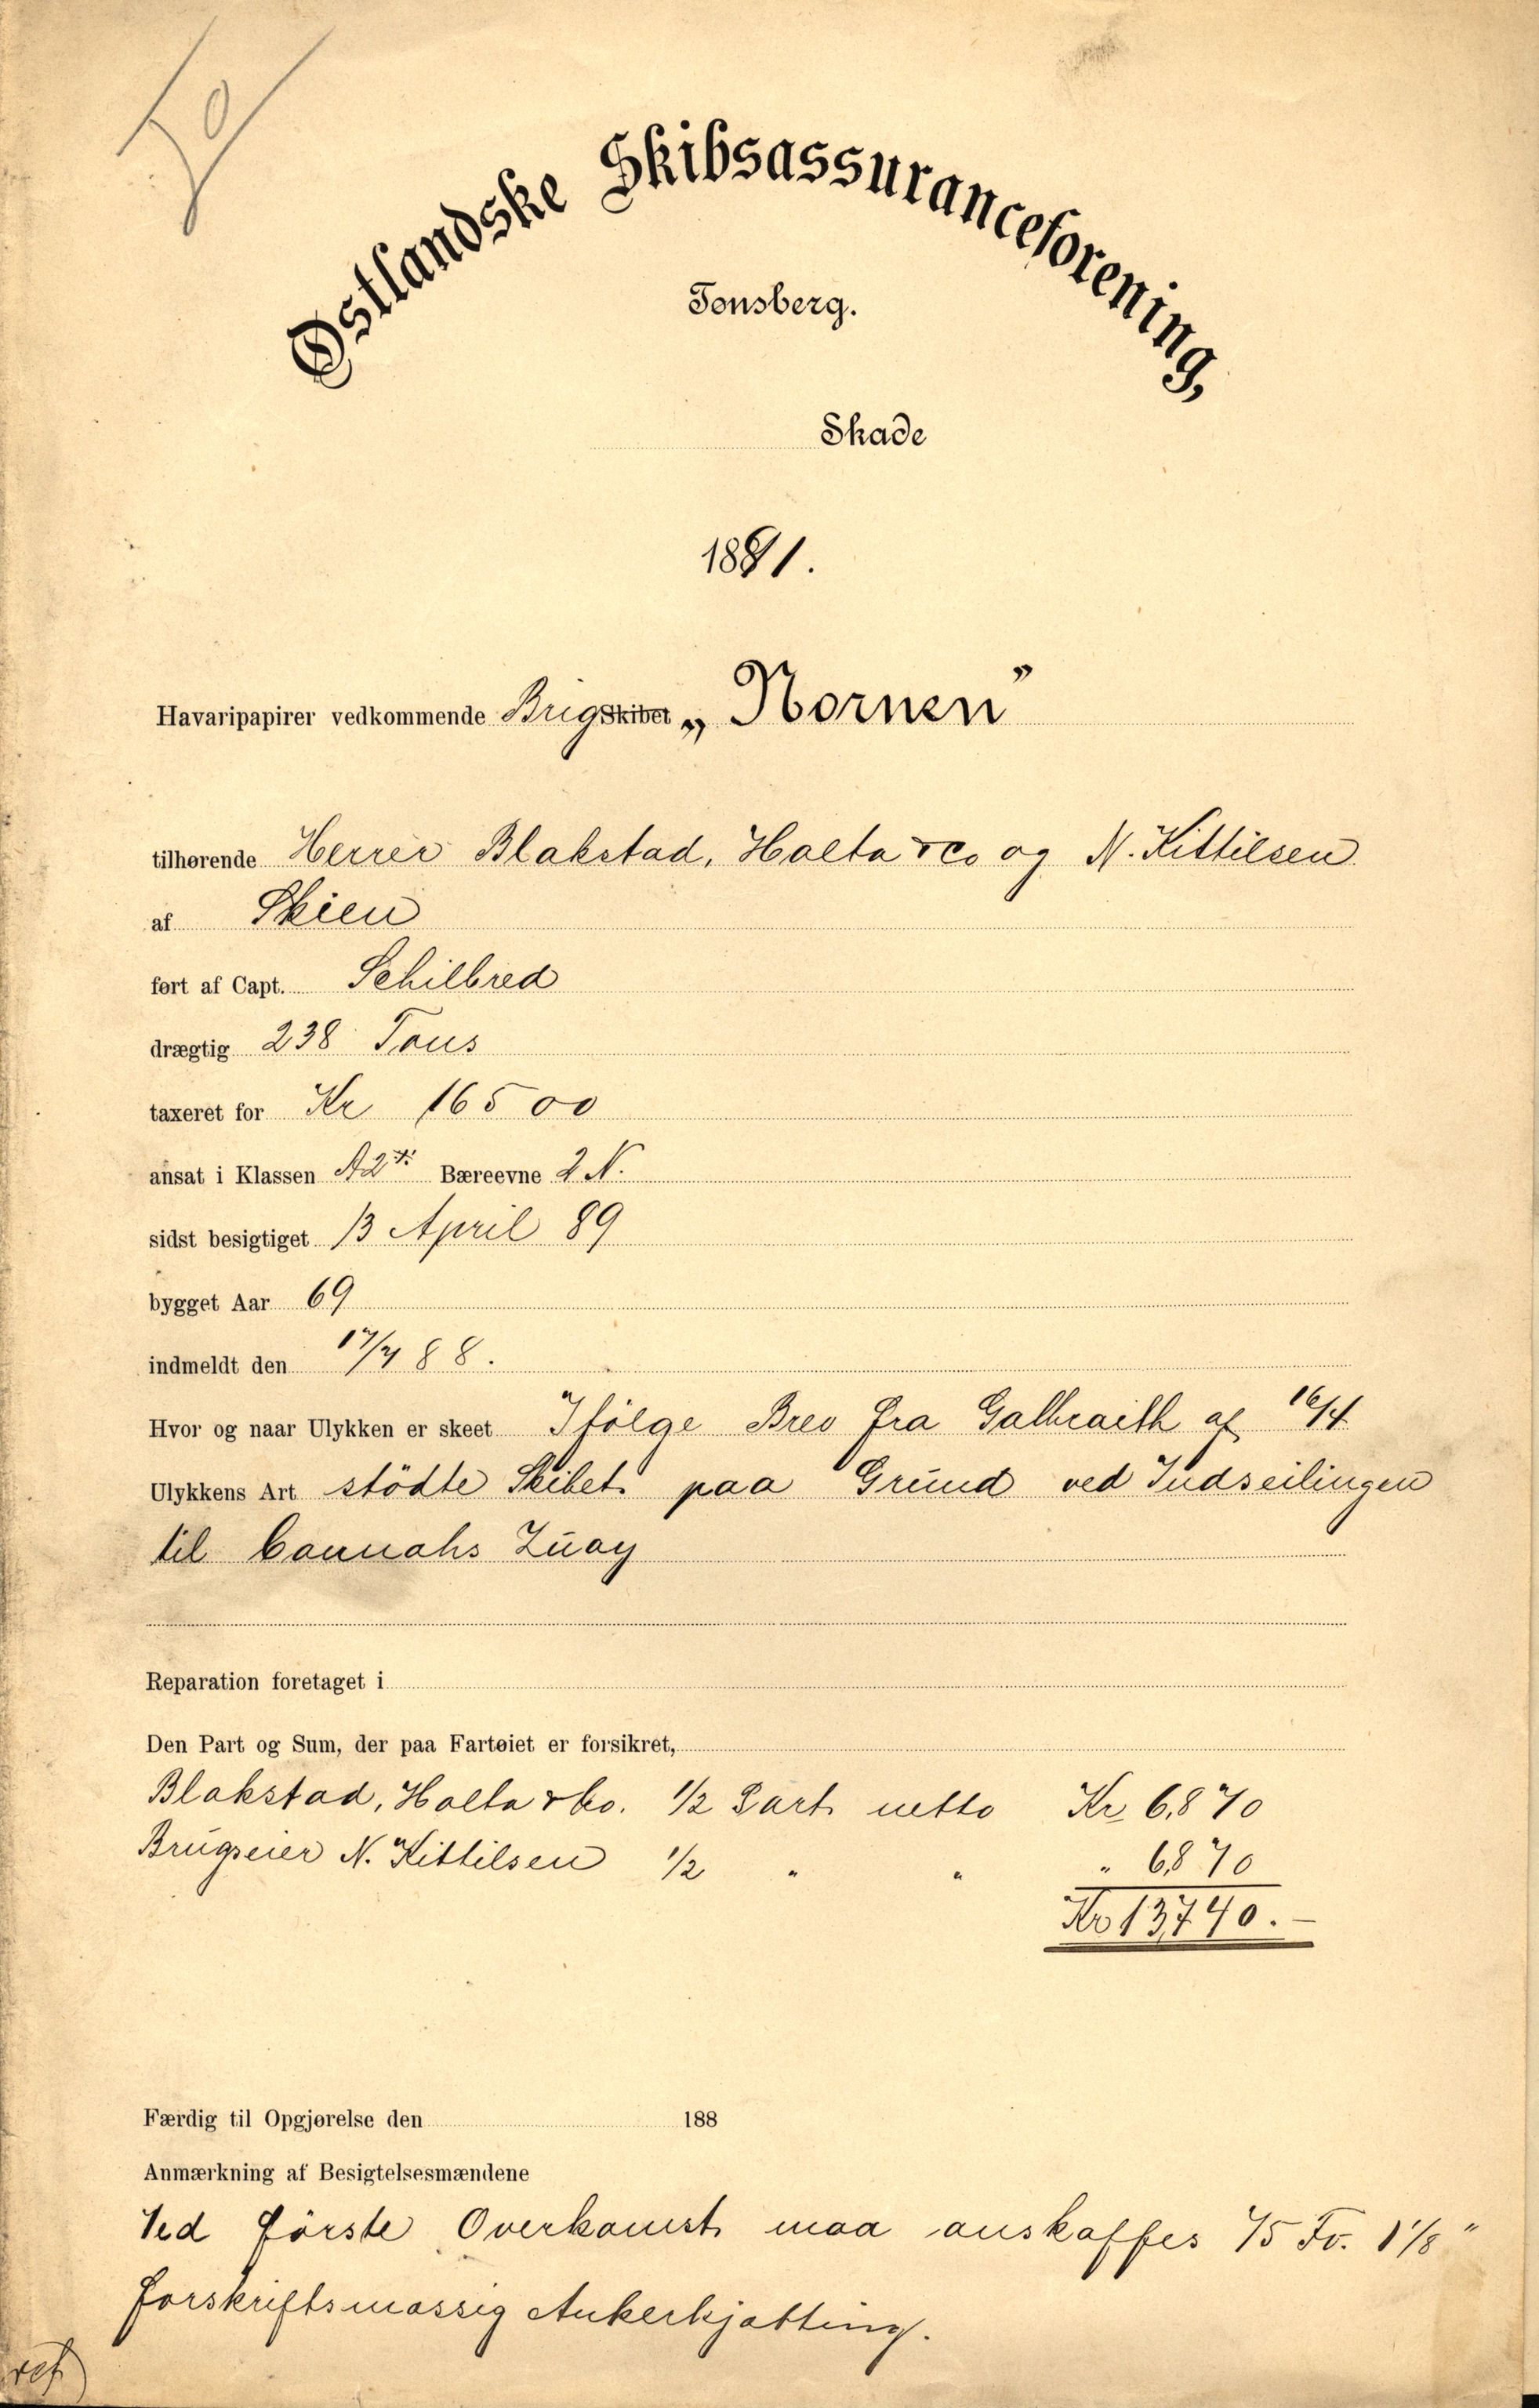 Østlandske Skibsassuranceforening,
Tønsberg.
Skade
1891.
Havaripapirer vedkommende Brigskibet „Nornen”
tilhørende Herrer Blakstad, Holta & Co og N. Kittilsen
af Skien
ført af Capt. Schilbred
drægtig 238 Tons
taxeret for Kr 16500
ansat i Klassen A2 Bæreevne 2 N.
sidst besigtiget 13 April 89
bygget Aar 69
indmeldt den 17/7 88.
Hvor og naar Ulykken er skeet Ifølge Brev fra Galbraith af 16/4
Ulykkens Art stödte Skibet paa Grund ved Indseilingen
til Connahs Quay
Reparation foretaget i
Den Part og Sum, der paa Fartøiet er forsikret,
Blakstad, Holta & Co. 1/2 Part netto Kr 6,870
Brugseier N. Kittilsen 1/2 " " " 6,870
Kr 13,740.-
Færdig til Opgjørelse den 188
Anmærkning af Besigtelsesmændene
Ved förste Overkomst maa anskaffes 75 Fv. 1 1/8"
forskriftsmassig Ankerkjætting.